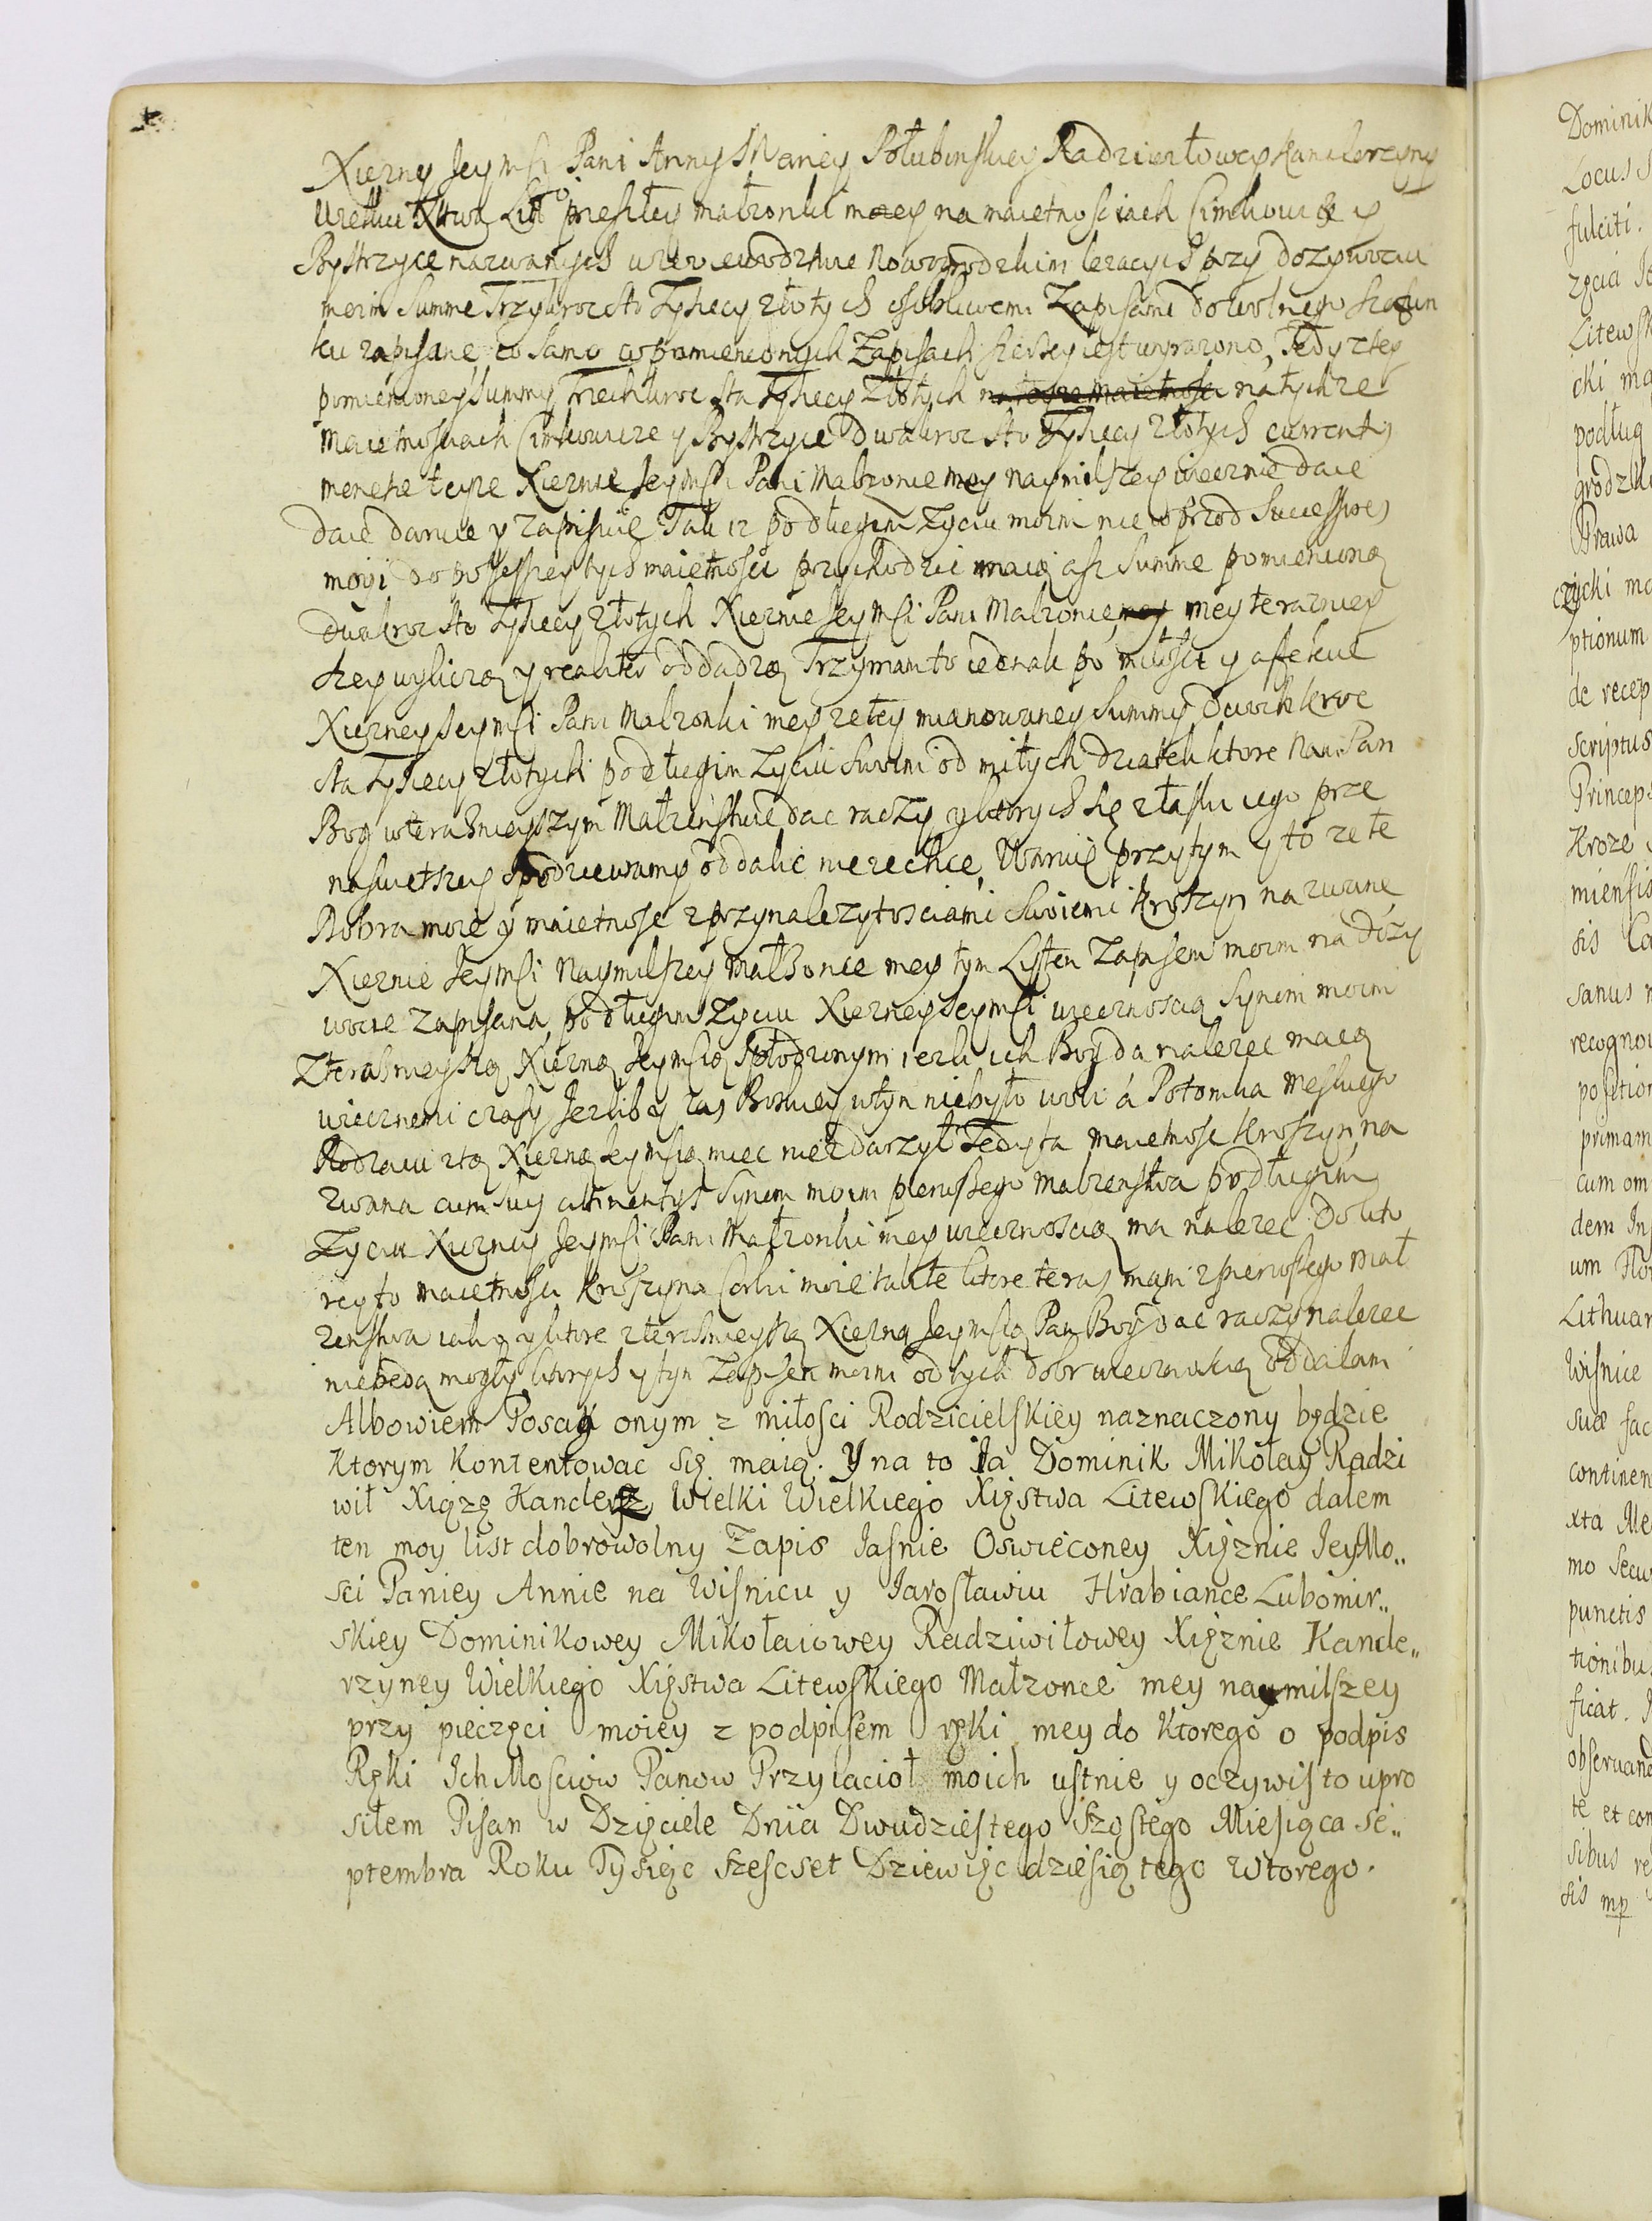 Xiężny Jeymsci Pani Anny Maryey Połubinskiey Radziwiłłowey Kanclerzyny
Wielkiey X Litto przeszłey małzonki moey na maietnosciach Cimkowicze y
Bystrzyce nazwanych w Woiewodztwie Nowogrodzkim lezacych przy dozywociu
moim Summe Trzykroc sto Tysiecy złotych osobliwemi Zapisami dowolnego szafun
ku zapisane, co samo w pomienionych Zapisach szerzey iest wyrazono, Tedy z tey
pomienioney Summy Trzechkroc sta Tysiecy Złotych na teyze maietnosci na tychze
Maietnosciach Cimkowicze y Bystrzyce Dwakroc sto Tysiecy złotych currentis
monetæ teyze Xieznie Jeymsci Pani Małzonce mey naymilszey wiecznie daie
daie daruie y zapisuie Tak iz po długim Zyciu moim nie wprzod Successores
moi do possessyey tych maietnosci przychodzic maią asz Summe pomienioną
dwakroc sto Tysiecy złotych Xieznie Jeymsci Pani Małzonce mey mey terazniey
szey wyliczą y realiter oddadzą Trzymam to iednak po miłosci y afekcie
Xiezney Jeymsci Pani Małzonki mey ze tey mianowaney Summy Dwochkroc
sta Tysiecy złotych po długim Zyciu swoim od miłych dziatek ktore nam Pan
Bog w teraznieyszym Małzenstwie dac raczy y ktorych się z łaski iego prze
naswietszey spodziewamy oddalic niezechce, Waruie przytym y to ze te
Dobra moie y maietnosc z przynalezytosciami swoiemi Kroszyn nazwane
Xieznie Jeymsci Naymilszey Małzonce mey tym Listem Zapisem moim na dozy
wocie zapisana, po długim Zyciu Xiezney Jeymsci wiecznoscią Synom moim
Z teraznieyszą Xiezną Jeymscią spłodzonym iezli ich Bog da nalezec maią
wiecznemi czasy Jezliby zas Boskiey w tym niebyło woli a Potomka męskiego
Rodzaiu z tą Xiezną Jeymscią miec niezdarzył Tedy ta maietnosc Kroszyn na
zwana cum suis attinentiis Synom moim pierwszego małzenstwa po długim
Zyciu Xiezney Jeymsci Pani Małzonki mey wiecznoscią ma nalezec Do kto
rey to maietnosci Kroszyna Corki moie tak te ktore teraz mam z pierwszego Mał
zenstwa iako y ktore z teraznieyszą Xiezną Jeymscią Pan Bog dac raczy nalezec
niebędą mogły ktorych y tym Zapisem moim od tych dobr wiecznoscią oddalam
Albowiem Posag onym z miłosci Rodzicielskiey naznaczony będzie
Ktorym Kontentowac się maią. Y na to Ja Dominik Mikołay Radzi
wił Xiązę Kanclerz Wielki Wielkiego Xięstwa Litewskiego dałem
ten moy list dobrowolny Zapis Jasnie Oswieconey Xięznie JeyMo„
sci Paniey Annie na Wisnicu y Jarosławiu Hrabiance Lubomir„
skiey Dominikowey Mikołaiowey Radziwiłowey Xięznie Kancle„
rzyney Wielkiego Xięstwa Litewskiego Małzonce mey naymilszey
przy pieczęci moiey z podpisem ręki mey do Ktorego o podpis
Ręki Ich Mosciow Panow Przyiacioł moich ustnie y oczywisto upro
siłem Pisan w Dzięciele Dnia Dwudziestego Szostego Miesiąca Se„
ptembra Roku Tysiąc szescset Dziewięcdziesiątego Wtorego.
Dominik
Locus S
fulciti.
zęcia Je
Litewsk
cki ma
podług
grodzki
Prawa
czycki ma
ptionum
de recep
scriptus
Princeps
Kroze
miensis
sis Ca
sanus m
recogno
position
primam
cum om
dem In
um Flor
Lithuan
Wisnice
suæ fac
continen
xta Me
mo Secu
punctis
tionibus
ficat.
observand
te et con
sibus re
sis mp